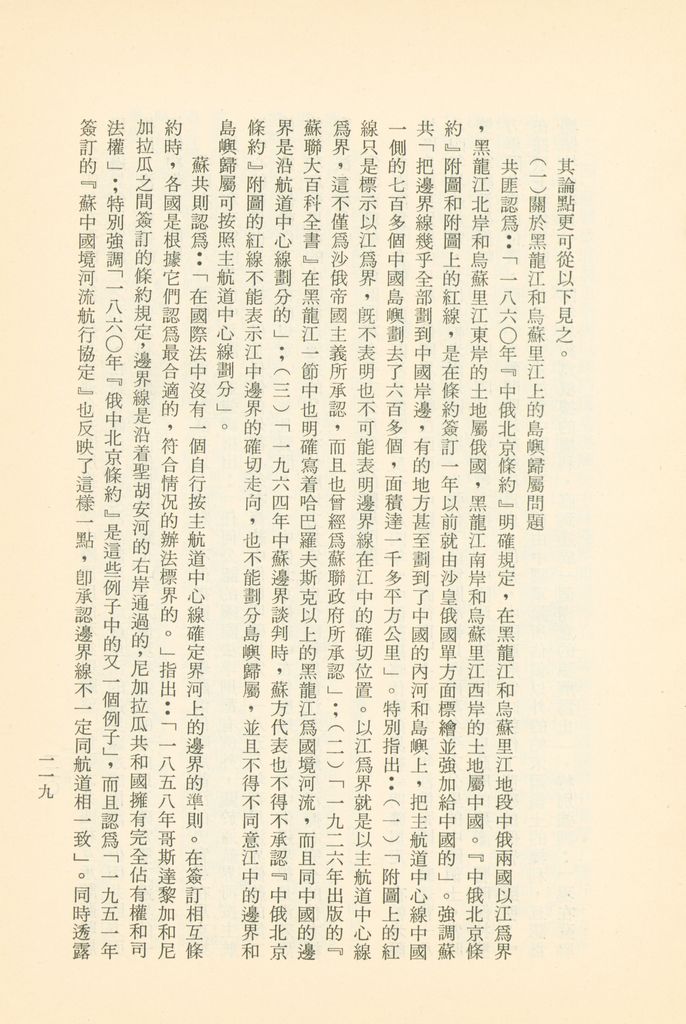 其論點更可從以下見之。
(一)關於黑龍江和烏蘇里江上的島嶼歸屬問題
共匪認爲：「一八六〇年『中俄北京條約』明確規定，在黑龍江和烏蘇里江地段中俄兩國以江爲界
，黑龍江北岸和烏蘇里江東岸的土地屬俄國，黑龍江南岸和烏蘇里江西岸的土地屬中國。『中俄北京條
約』附圖和附圖上的紅線，是在條約簽訂一年以前就由沙皇俄國單方面標繪並強加給中國的」。強調蘇
共「把邊界線幾乎全部劃到中國岸邊，有的地方甚至劃到了中國的內河和島嶼上，把主航道中心線中國
一側的七百多個中國島嶼劃去了六百多個，面積達一千多平方公里」。特別指出：(一)「附圖上的紅
線只是標示以江爲界，旣不表明也不可能表明邊界線在江中的確切位置。以江爲界就是以主航道中心線
爲界，這不僅爲沙俄帝國主義所承認，而且也曾經爲蘇聯政府所承認」；(二)「一九二六年出版的『
蘇聯大百科全書』在黑龍江一節中也明確寫着哈巴羅夫斯克以上的黑龍江爲國境河流，而且同中國的邊
界是沿航道中心線劃分的」；(三)「一九六四年中蘇邊界談判時，蘇方代表也不得不承認『中俄北京
條約』附圖的紅線不能表示江中邊界的確切走向，也不能劃分島嶼歸屬，並且不得不同意江中的邊界和
島嶼歸屬可按照主航道中心線劃分」。
蘇共則認爲：「在國際法中沒有一個自行按主航道中心線確定界河上的邊界的準則。在簽訂相互條
約時，各國是根據它們認爲最合適的，符合情況的辦法標界的。」指出：「一八五八年哥斯達黎加和尼
加拉瓜之間簽訂的條約規定，邊界線是沿着聖胡安河的右岸通過的，尼加拉瓜共和國擁有完全佔有權和司
法權」；特別強調「一八六〇年『俄中北京條約』是這些例子中的又一個例子」，而且認爲「一九五一年
簽訂的『蘇中國境河流航行協定』也反映了這樣一點，卽承認邊界線不一定同航道相一致」。同時透露
一一九